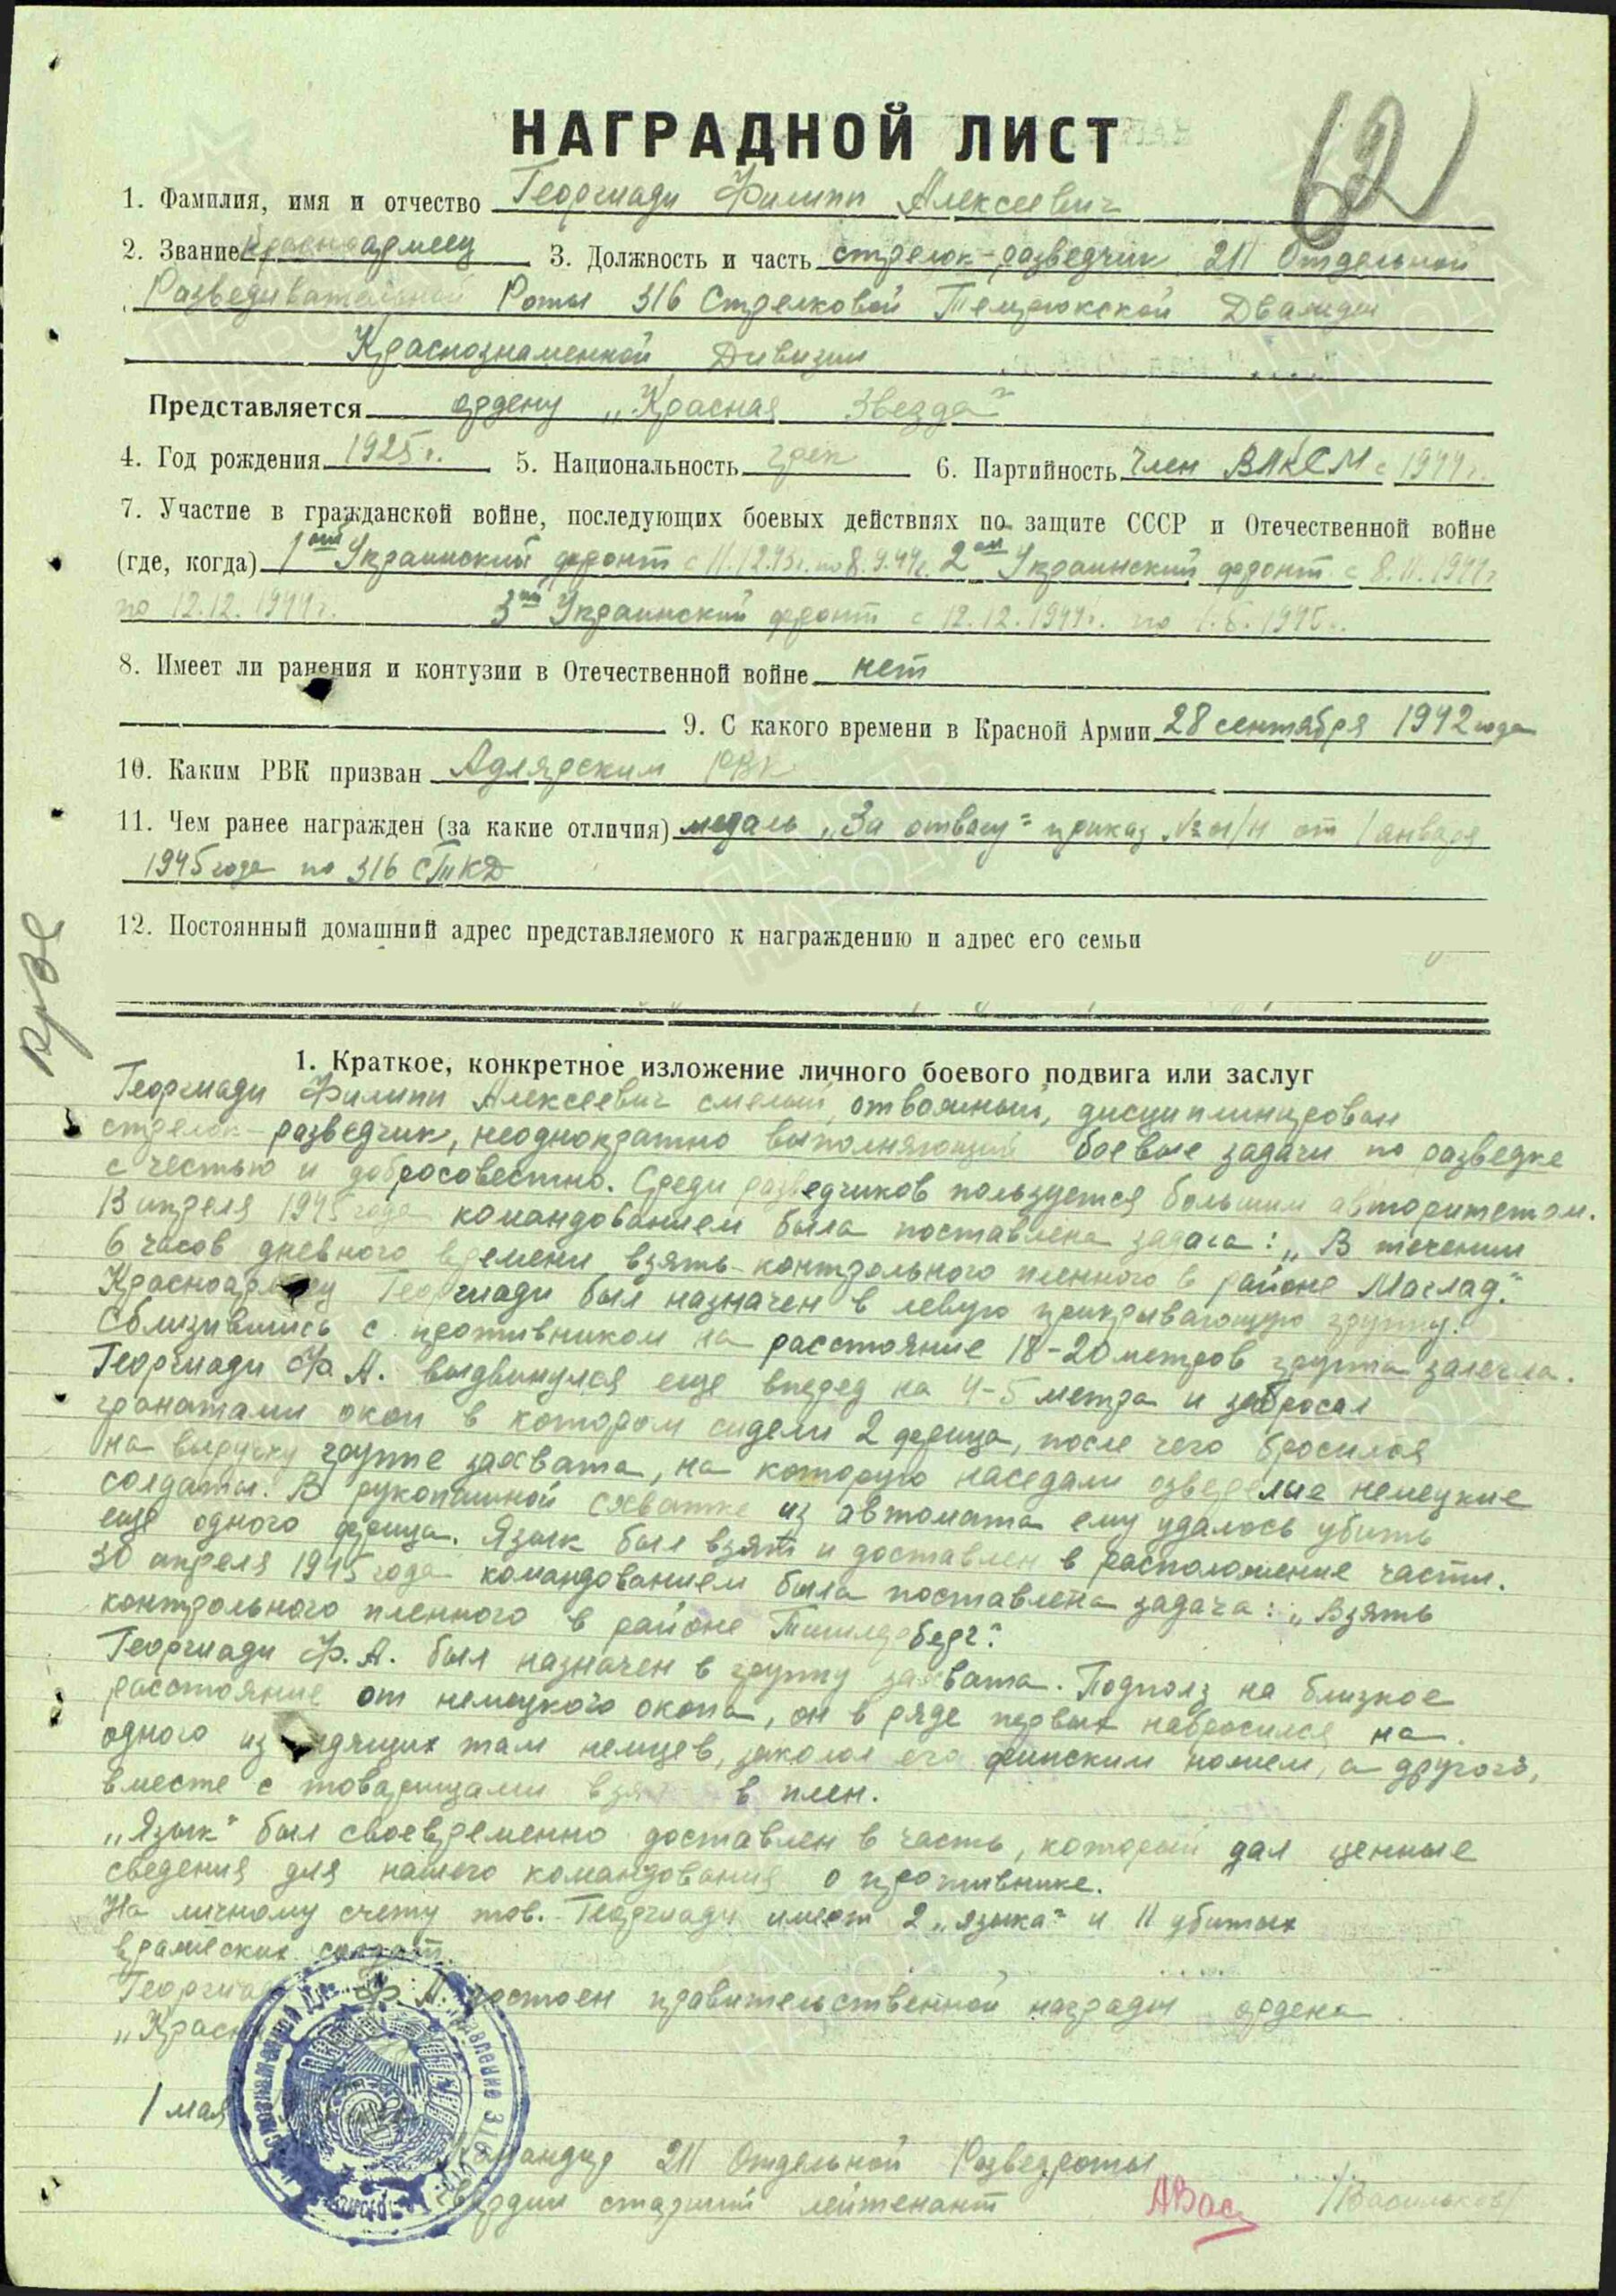 62
НАГРАДНОЙ ЛИСТ
1. Фамилия, имя и отчество Георгиади Филипп Алексеевич
2. Звание Красноармеец 3. Должность и часть стрелок-разведчик 211 Отдельной
Разведывательной Роты 316 Стрелковой Темрюкской Дважды
Краснознаменной Дивизии
Представляется ордену „Красная Звезда"
4. Год рождения 1925 г. 5. Национальность грек 6. Партийность Член ВЛКСМ с 1944 г.
7. Участие в гражданской войне, последующих боевых действиях по защите СССР и Отечественной войне
(где, когда) 1ый Украинский фронт с 11.12.43 г. по 8.9.44 г. 2ой Украинский фронт с 8.11.1944 г
по 12.12.1944 г. 3ий Украинский фронт с 12.12.1944 г. по 1.5.1945 г.
8. Имеет ли ранения и контузии в Отечественной войне нет
9. С какого времени в Красной Армии 28 сентября 1942 года
10. Каким РВК призван Адлярским РВК
11. Чем ранее награжден (за какие отличия) медаль „За отвагу" приказ № н/н от 1 января
1945 года по 316 СТКД
12. Постоянный домашний адрес представляемого к награждению и адрес его семьи
1. Краткое, конкретное изложение личного боевого подвига или заслуг
Георгиади Филипп Алексеевич смелый, отважный, дисциплинирован
стрелок-разведчик, неоднократно выполняющий боевые задачи по разведке
с честью и добросовестно. Среди разведчиков пользуется большим авторитетом.
13 апреля 1945 года командованием была поставлена задача: „В течении
6 часов дневного времени взять контрольного пленного в районе Маглад."
Красноармеец Георгиади был назначен в левую прикрывающую группу.
Сблизившись с противником на расстояние 18-20 метров группа залегла.
Георгиади Ф. А. выдвинулся еще вперед на 4-5 метра и забросал
гранатами окоп в котором сидели 2 фрица, после чего бросился
на выручку группе захвата, на которую наседали озверелые немецкие
солдаты. В рукопашной схватке из автомата ему удалось убить
еще одного фрица. Язык был взят и доставлен в расположение части.
30 апреля 1945 года командованием была поставлена задача: „Взять
контрольного пленного в районе
Георгиади Ф. А. был назначен в группу захвата. Подполз на близкое
расстояние от немецкого окопа, он в ряде первых набросился на
одного из сидящих там немцев, заколол его финским ножем, а другого,
вместе с товарищами взял в плен.
„Язык" был своевременно доставлен в часть, который дал ценные
сведения для нашего командования о противнике.
На личному счету тов. Георгиади имеет 2 „языка" и 11 убитых
вражеских солдат.
Георгиади Ф. А. достоен правительственной награды ордена
„Красн
1 мая
Командир 211 Отдельной Разведроты
Гвардии старший лейтенант АВас /Васильков/